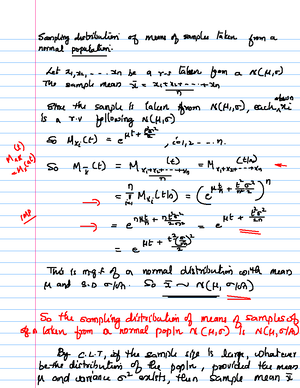 Sampling distribution of means of samples taken from a
normal population.
Let x₁, x₂, .... xn be a r.s taken from a N(μ,σ)
The sample mean x̄ = x₁+x₂+....+xn / n
Since the sample is taken from N(μ,σ), each xi
is a r.v following N(μ,σ)
So M_xi(t) = e^(μt + t²σ²/2), i=1,2....n.
So M_x̄(t) = M_(x₁+x₂+....+xn / n)(t) = M_(x₁+x₂+....+xn)(t/n)
= ∏ M_xi(t/n) = (e^(μt/n + t²σ²/2n²))^n
IMP
= e^(nμt/n + nt²σ²/2n²) = e^(μt + t²σ²/2n)
= e^(μt + t²(σ/√n)²/2)
This is m.g.f of a normal distribution with mean
μ and S.D σ/√n. So x̄ ~ N(μ, σ/√n)
So the sampling distribution of means of samples of
taken from a normal popln N(μ,σ) is N(μ,σ/√n)
By C.L.T, if the sample size is large, whatever
be the distribution of the popln, provided the mean
μ and variance σ² exists, then sample mean x̄